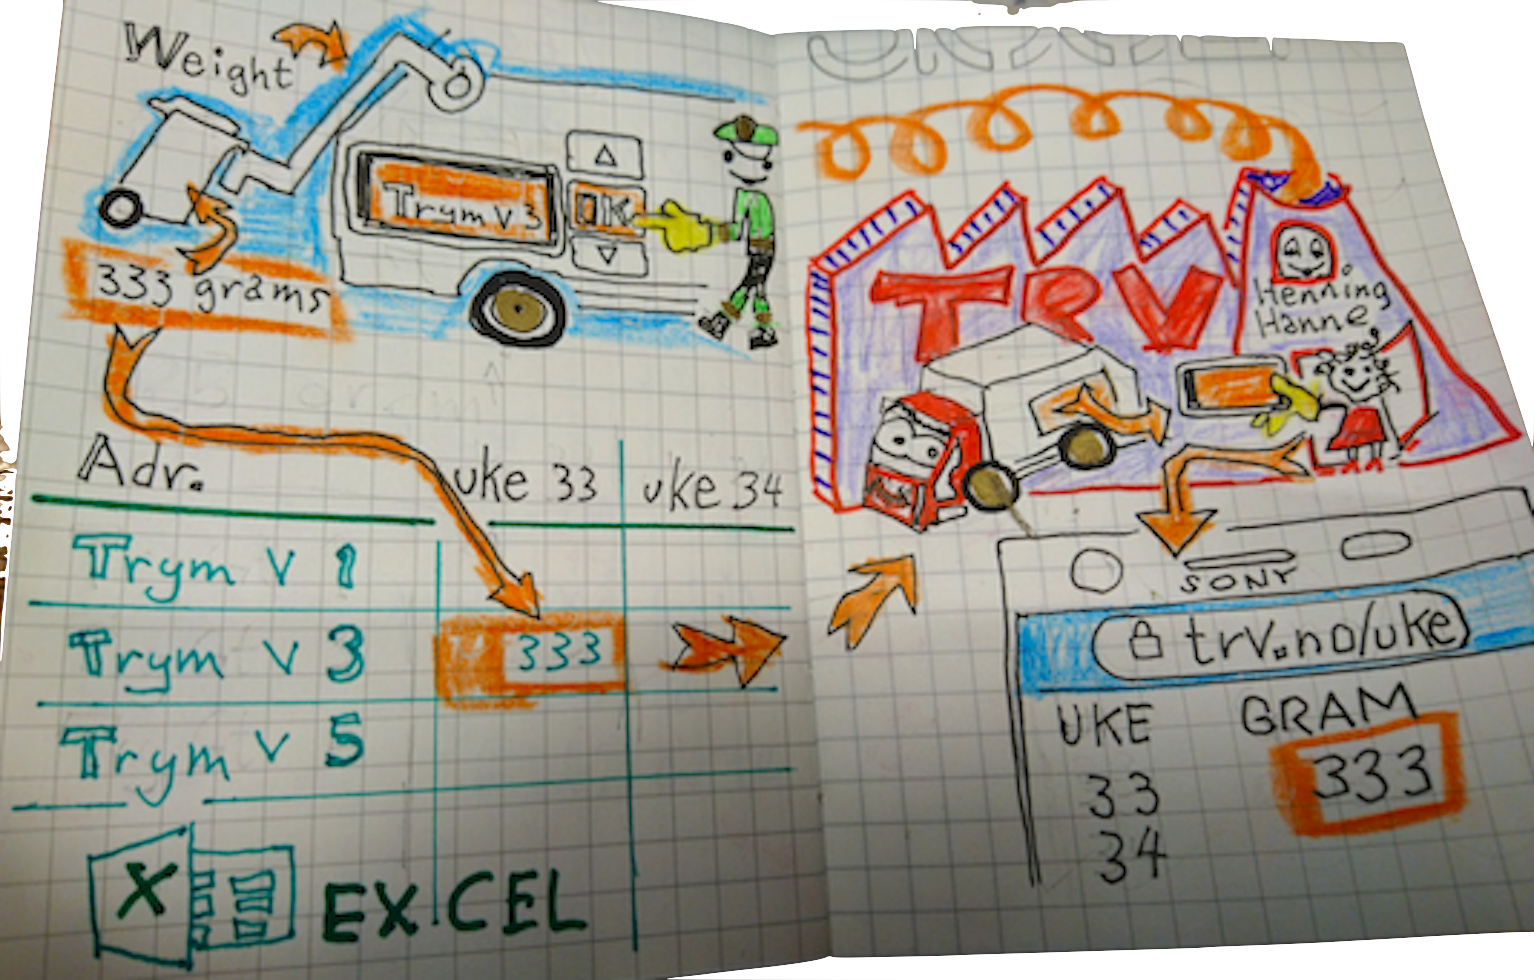 Weight
Trym V 3
OK
333 grams
Adr.
uke 33
uke 34
Trym V 1
Trym V 3
333
Trym V 5
X
EXCEL
TRV
Henning
Hanne
SONY
trv.no/uke
UKE
GRAM
33
333
34